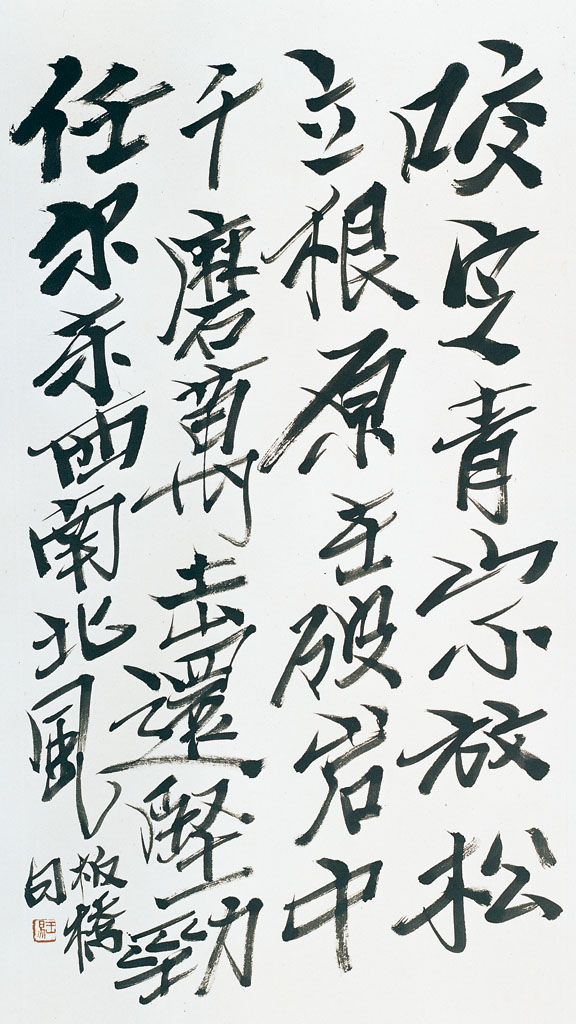 咬定青山不放松
立根原在破岩中
千磨萬击還堅勁
任尔东西南北風
板橋
句